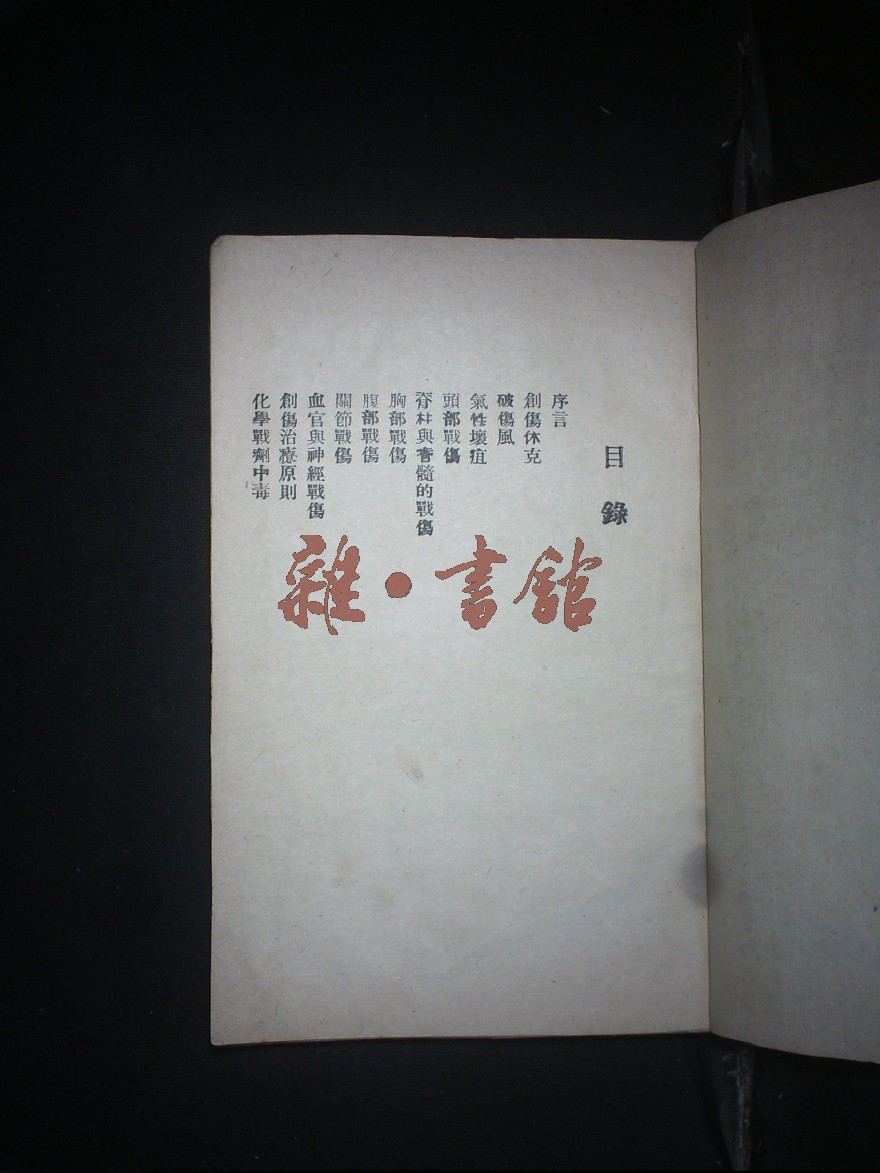 目錄
序言
創傷休克
破傷風
氣性壞疽
頭部戰傷
脊柱與脊髓的戰傷
胸部戰傷
腹部戰傷
關節戰傷
血官與神經戰傷
創傷治療原則
化學戰劑中毒
雜·書館